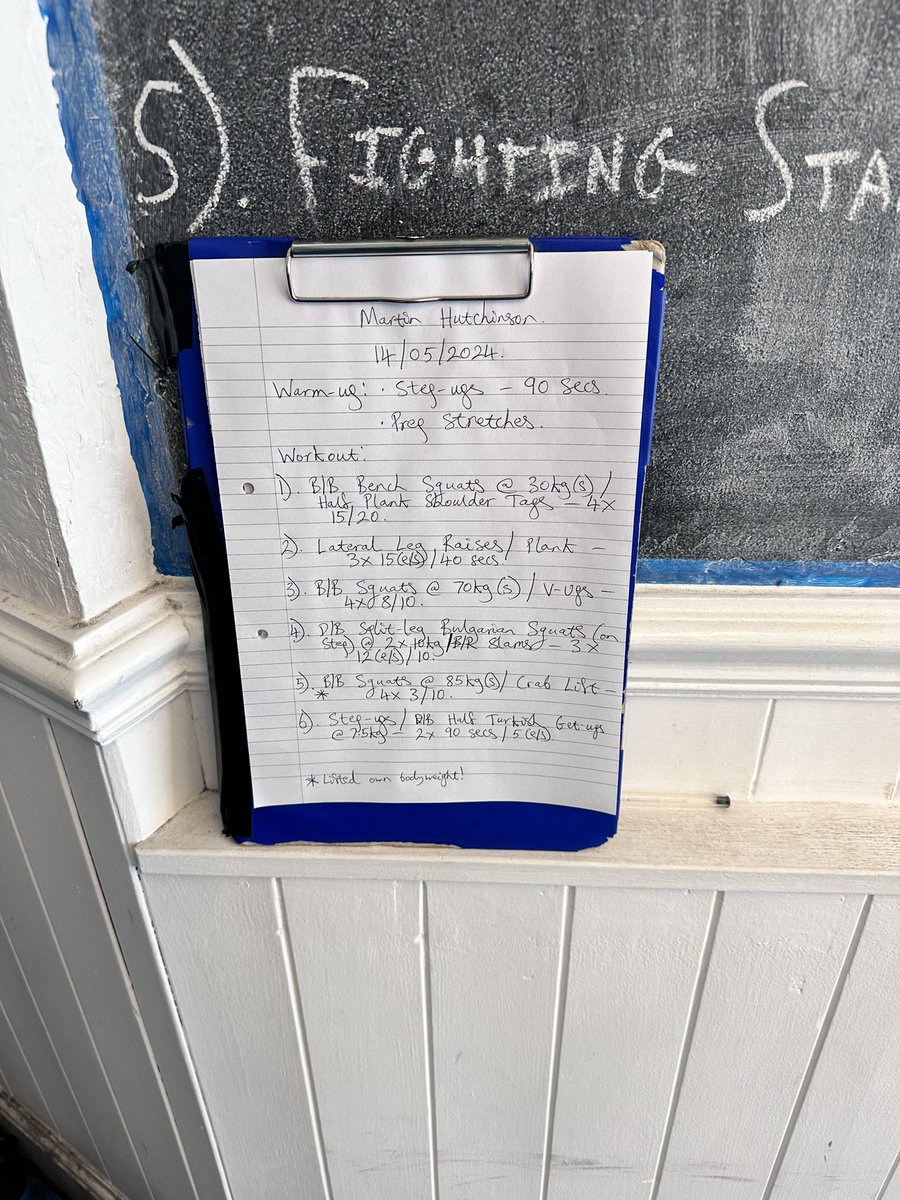 5). FIGHTING STA
Martin Hutchinson.
14/05/2024.
Warm-up: · Step-ups – 90 secs.
· Prep Stretches.
Workout:
1). B/B Bench Squats @ 30kg(s) /
Half Plank Shoulder Taps – 4x
15/20.
2). Lateral Leg Raises / Plank –
3x 15(e/s) / 40 secs.
3). B/B Squats @ 70kg(s) / V-ups –
4x 8/10.
4). D/B Split-leg Bulgarian Squats (on
Step) @ 2x10kg / B/R Slams – 3x
12(e/s) / 10.
5). B/B Squats @ 85kg(s) / Crab Lift –
* 4x 3/10.
6). Step-ups / D/B Half Turkish Get-ups
@ 7.5kg – 2x 90 secs / 5(e/s)
* Lifted own bodyweight!